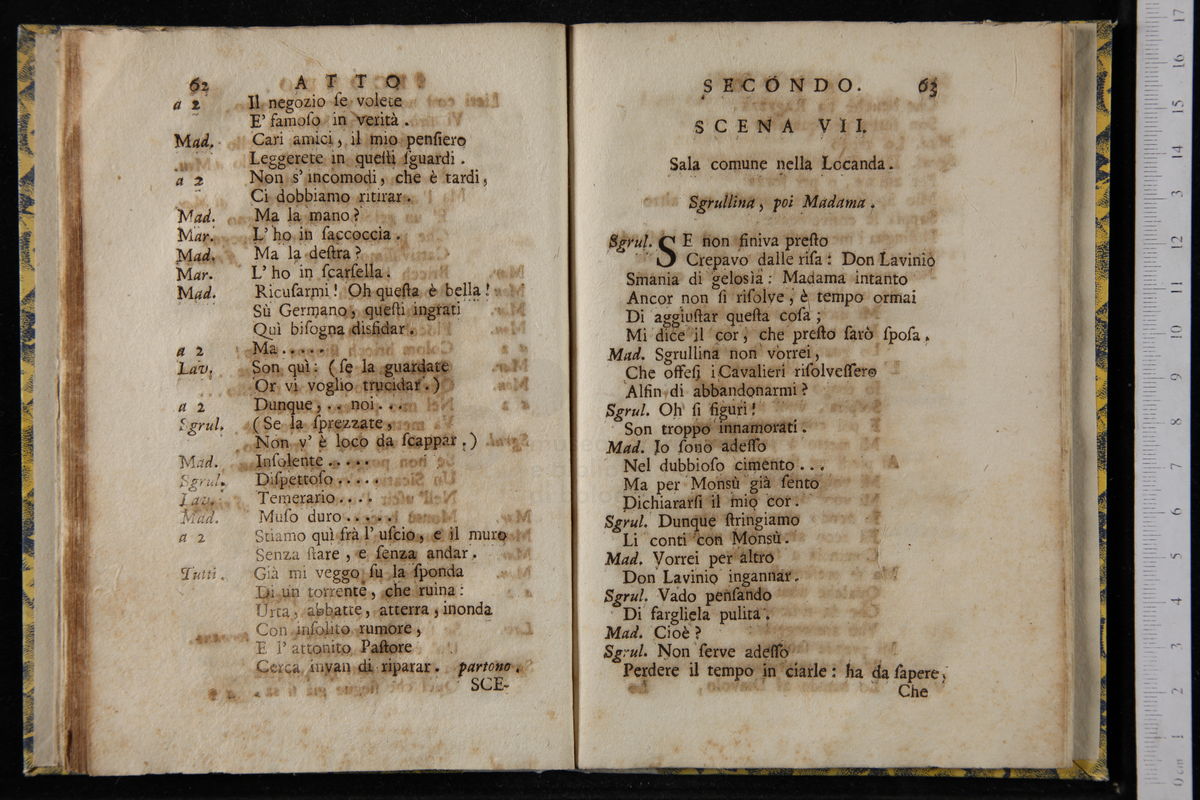 62 ATTO
a 2 Il negozio ſe volete
E' famoſo in verità.
Mad. Cari amici, il mio penſiero
Leggerete in queſti ſguardi.
a 2 Non s' incomodi, che è tardi,
Ci dobbiamo ritirar.
Mad. Ma la mano?
Mar. L' ho in ſaccoccia.
Mad. Ma la deſtra?
Mar. L' ho in ſcarſella.
Mad. Ricuſarmi! Oh queſta è bella!
Sù Germano, queſti ingrati
Quì biſogna disfidar.
a 2 Ma.....
Lav. Son quì: (ſe la guardate
Or vi voglio trucidar.)
a 2 Dunque,.. noi...
Sgrul. (Se la ſprezzate,
Non v' è loco da ſcappar.)
Mad. Inſolente.....
Sgrul. Diſpettoſo.....
Lav. Temerario....
Mad. Muſo duro.....
a 2 Stiamo quì frà l' uſcio, e il muro
Senza ſtare, e ſenza andar.
Tutti. Già mi veggo ſu la ſponda
Di un torrente, che ruina:
Urta, abbatte, atterra, inonda
Con inſolito rumore,
E l' attonito Paſtore
Cerca invan di riparar. partono.
SCE-
SECONDO. 63
SCENA VII.
Sala comune nella Locanda.
Sgrullina, poi Madama.
Sgrul. SE non finiva preſto
Crepavo dalle riſa: Don Lavinio
Smania di geloſia: Madama intanto
Ancor non ſi riſolve, è tempo ormai
Di aggiuſtar queſta coſa;
Mi dice il cor, che preſto ſarò ſpoſa.
Mad. Sgrullina non vorrei,
Che offeſi i Cavalieri riſolveſſero
Alfin di abbandonarmi?
Sgrul. Oh ſi figuri!
Son troppo innamorati.
Mad. Jo ſono adeſſo
Nel dubbioſo cimento...
Ma per Monsù già ſento
Dichiararſi il mio cor.
Sgrul. Dunque ſtringiamo
Li conti con Monsù.
Mad. Vorrei per altro
Don Lavinio ingannar.
Sgrul. Vado penſando
Di fargliela pulita.
Mad. Cioè?
Sgrul. Non ſerve adeſſo
Perdere il tempo in ciarle: ha da ſapere,
Che